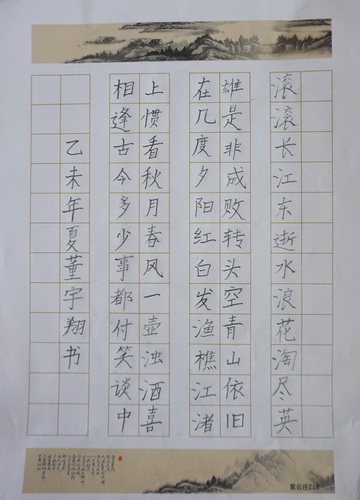 滚滚长江东逝水浪花淘尽英
雄是非成败转头空青山依旧
在几度夕阳红白发渔樵江渚
上惯看秋月春风一壶浊酒喜
相逢古今多少事都付笑谈中
乙未年夏董宇翔书